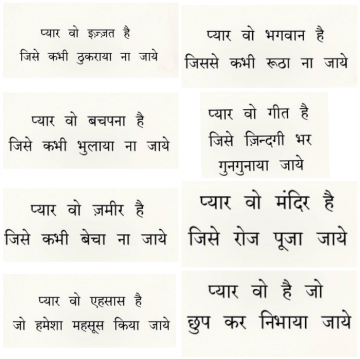 प्यार वो इज़्ज़त है
जिसे कभी ठुकराया ना जाये
प्यार वो भगवान है
जिससे कभी रूठा ना जाये
प्यार वो बचपना है
जिसे कभी भुलाया ना जाये
प्यार वो गीत है
जिसे ज़िन्दगी भर
गुनगुनाया जाये
प्यार वो ज़मीर है
जिसे कभी बेचा ना जाये
प्यार वो मंदिर है
जिसे रोज पूजा जाये
प्यार वो एहसास है
जो हमेशा महसूस किया जाये
प्यार वो है जो
छुप कर निभाया जाये